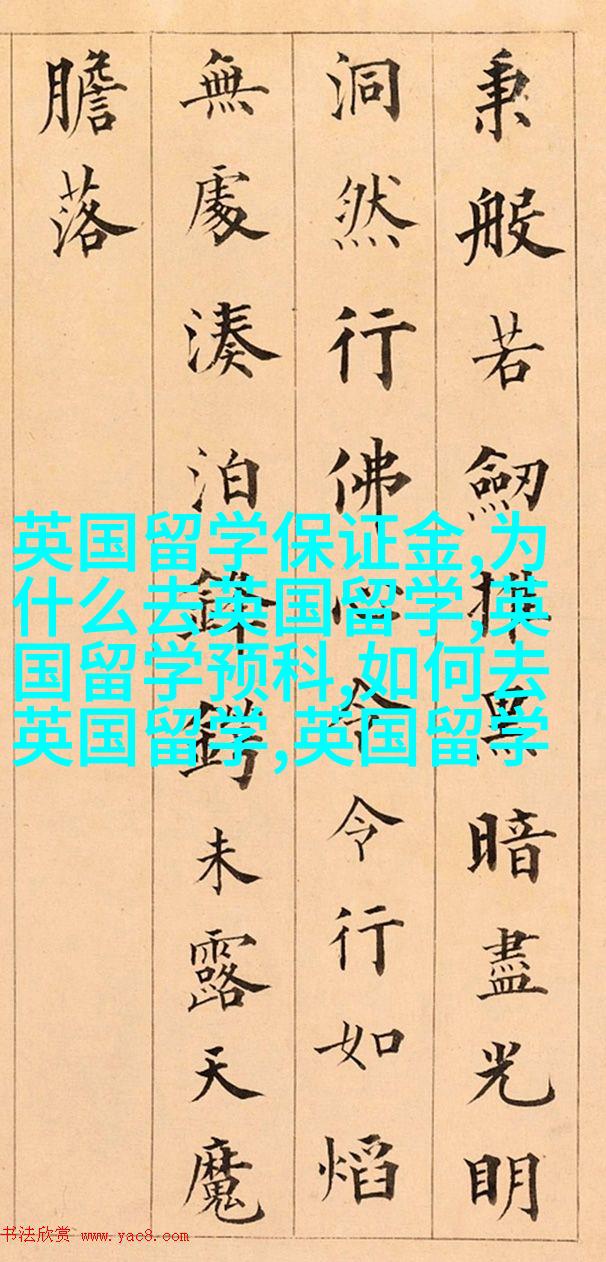 秉般若劒揮黑暗盡光明
洞然行佛心令令行如熖
無處湊泊鋒鍔未露天魔
膽落
英国留学保证金,为
什么去英国留学,英
国留学预科,如何去
英国留学,英国留学
书法欣赏 www.yac8.com